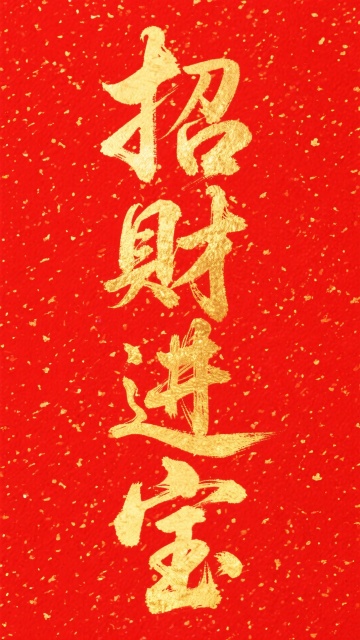 招財进宝